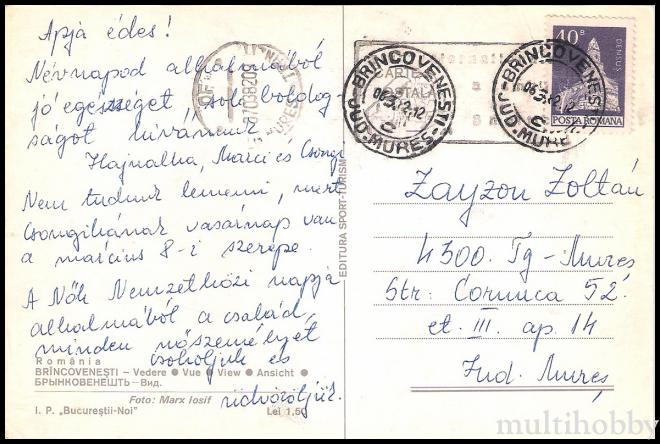 Apja édes!
Névnapod alkalmából
jó egészséget, sok boldog-
ságot kívánunk
Hajnalka, Marci és Csongi
Nem tudunk lemenni, mert
Csongikának vasárnap van
a március 8-i szerepe.
A Nők Nemzetközi napja
alkalmából a család,
minden nőszemélyét
csókoljuk és
üdvözöljük.
România
BRÎNCOVENEȘTI – Vedere ● Vue ● View ● Ansicht ●
БРЫНКОВЕНЕШТЬ — Вид.
Foto: Marx Iosif
I. P. „Bucureștii-Noi" Lei 1,50
EDITURA SPORT-TURISM
BRINCOVENEȘTI
JUD. MUREȘ
BRINCOVENEȘTI
JUD. MUREȘ
40B
DENSUS
POSTA ROMANA
Zayzon Zoltán
4300. Tg-Mureș
Str: Cornișa 52.
et. III. ap. 14
Jud. Mureș
multihobby